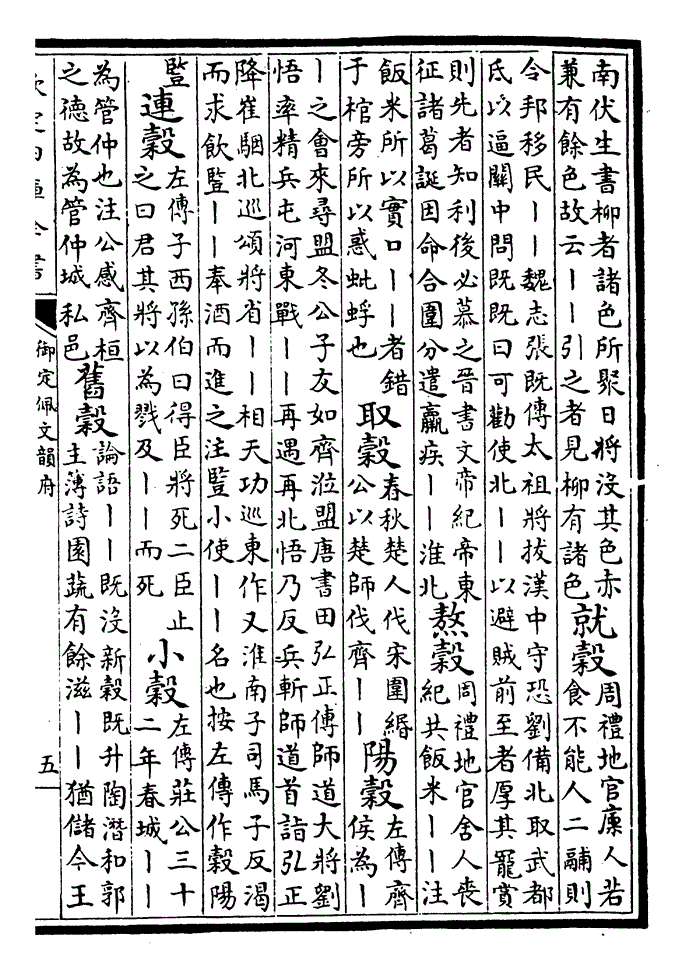 南伏生書柳者諸色所聚日將沒其色赤
兼有餘色故云丨丨引之者見柳有諸色
就穀
周禮地官廩人若
食不能人二鬴則
令邦移民丨丨魏志張既傳太祖將拔漢中守恐劉備北取武都
氐以逼關中問既既曰可勸使北丨丨以避賊前至者厚其寵賞
則先者知利後必慕之晉書文帝紀帝東
征諸葛誕因命合圍分遣羸疾丨丨淮北
熬穀
周禮地官舍人喪
紀共飯米丨丨注
飯米所以實口丨丨者錯
于棺旁所以惑蚍蜉也
取穀
春秋楚人伐宋圍緡
公以楚師伐齊丨丨
陽穀
左傳齊
侯為丨
丨之會來尋盟冬公子友如齊涖盟唐書田弘正傳師道大將劉
悟率精兵屯河東戰丨丨再遇再北悟乃反兵斬師道首詣弘正
降崔駰北巡頌將省丨丨相天功巡東作又淮南子司馬子反渴
而求飲豎丨丨奉酒而進之注豎小使丨丨名也按左傳作穀陽
豎
連穀
左傳子西孫伯曰得臣將死二臣止
之曰君其將以為戮及丨丨而死
小穀
左傳莊公三十
二年春城丨丨
為管仲也注公感齊桓
之德故為管仲城私邑
舊穀
論語丨丨既沒新穀既升陶潛和郭
主薄詩園蔬有餘滋丨丨猶儲今王
欽定四庫全書
御定佩文韻府
五